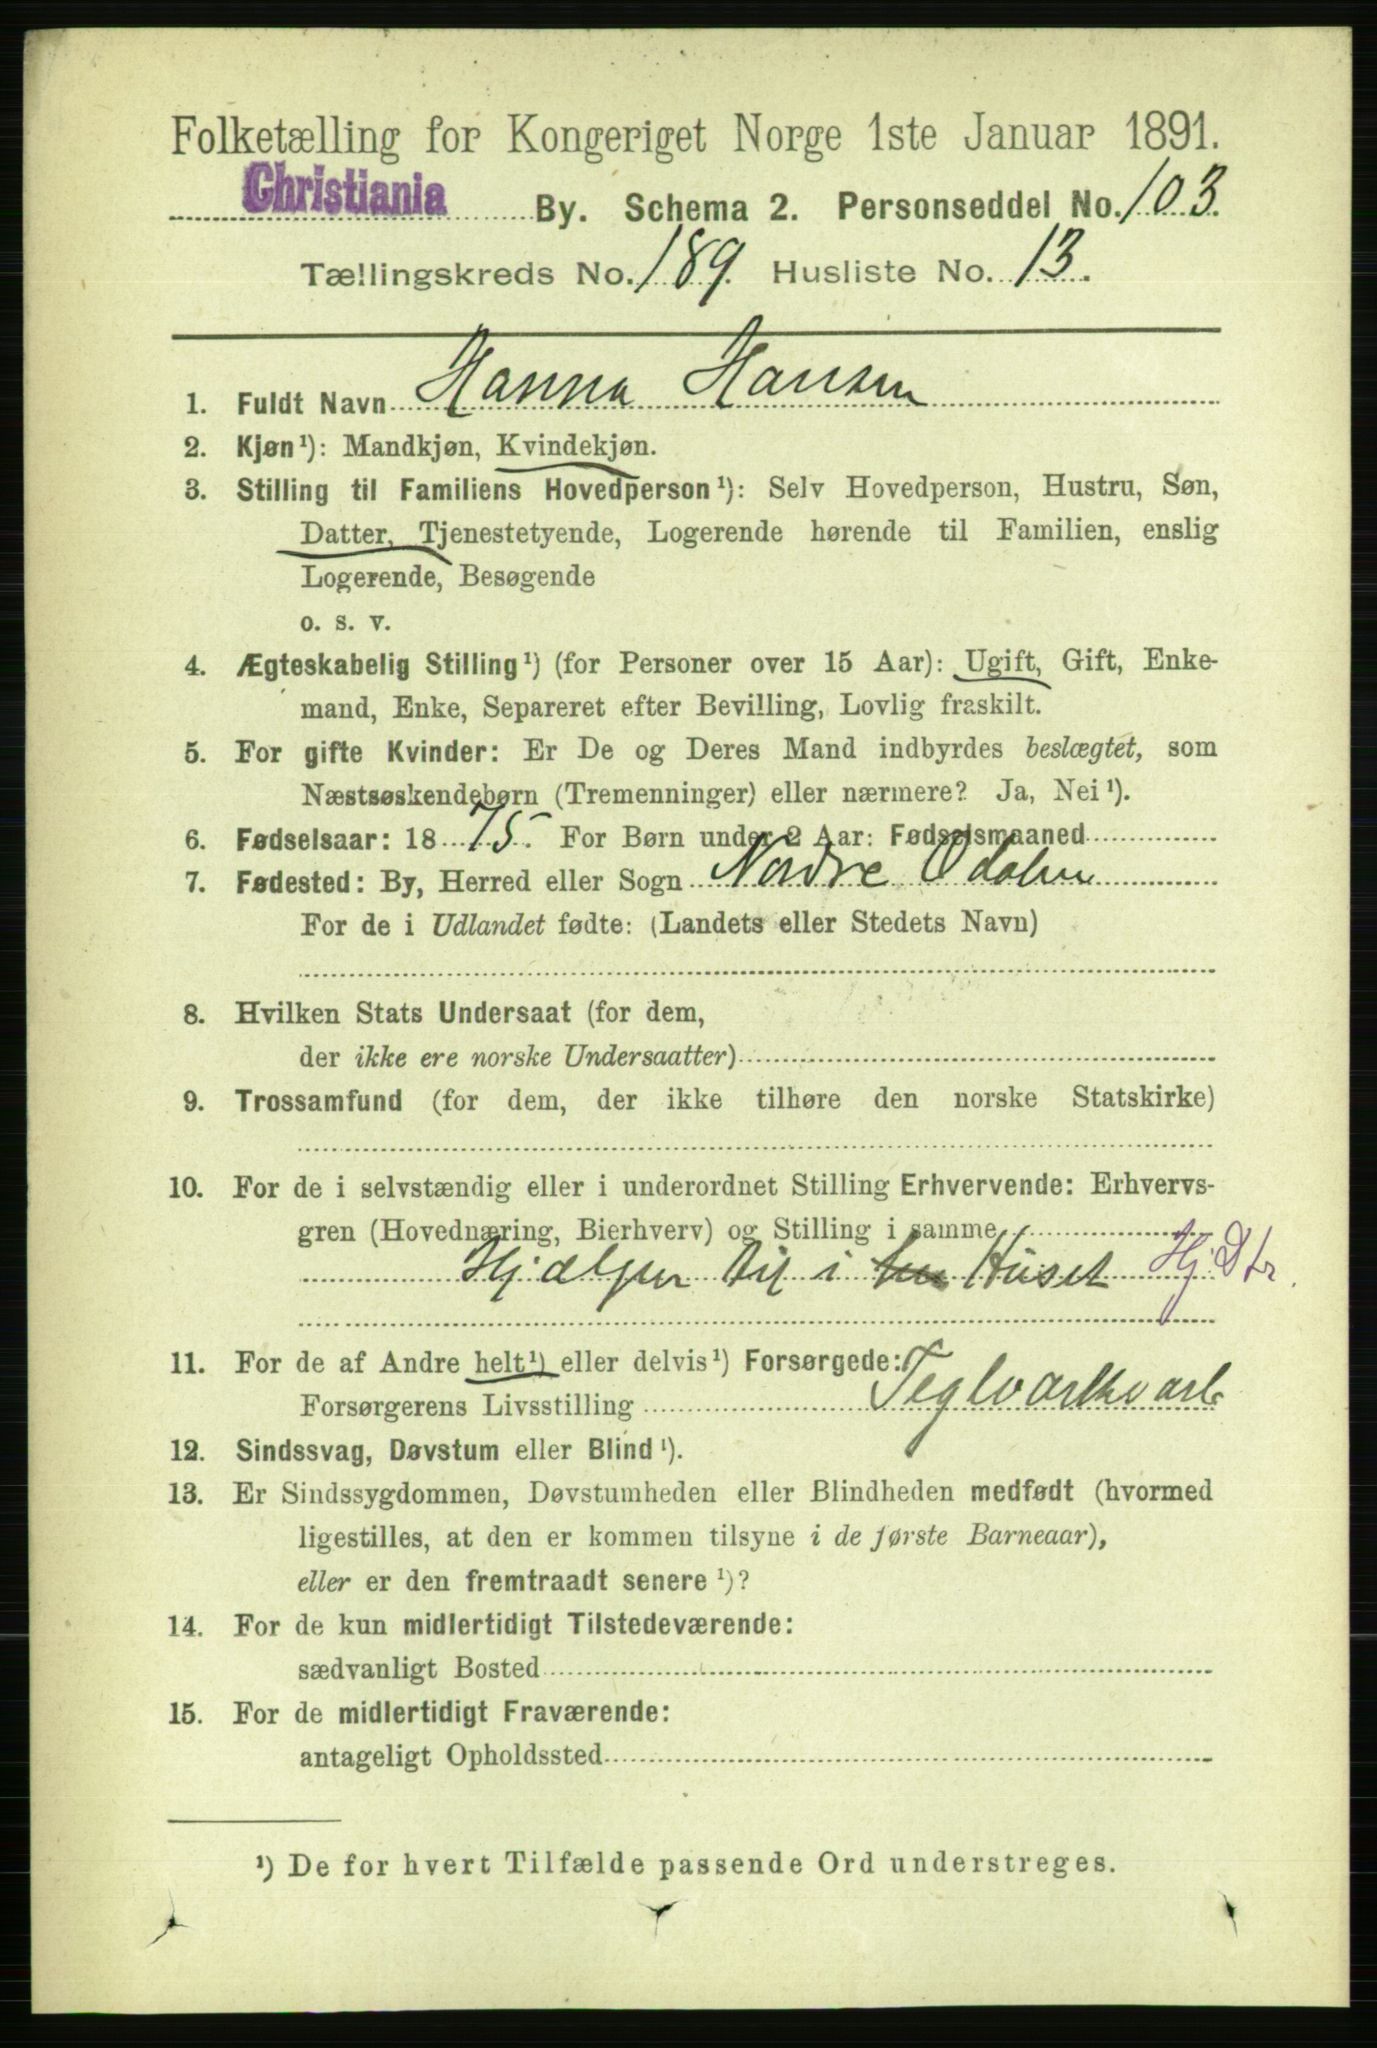 Folketælling for Kongeriget Norge 1ste Januar 1891.
Christiania By. Schema 2. Personseddel No. 103.
Tællingskreds No. 189. Husliste No. 13.
1. Fuldt Navn Hanna Hansen
2. Kjøn¹): Mandkjøn, Kvindekjøn.
3. Stilling til Familiens Hovedperson¹): Selv Hovedperson, Hustru, Søn,
Datter, Tjenestetyende, Logerende hørende til Familien, enslig
Logerende, Besøgende
o. s. v.
4. Ægteskabelig Stilling¹) (for Personer over 15 Aar): Ugift, Gift, Enke-
mand, Enke, Separeret efter Bevilling, Lovlig fraskilt.
5. For gifte Kvinder: Er De og Deres Mand indbyrdes beslægtet, som
Næstsøskendebørn (Tremenninger) eller nærmere? Ja, Nei¹).
6. Fødselsaar: 1875. For Børn under 2 Aar: Fødselsmaaned
7. Fødested: By, Herred eller Sogn Nordre Odalen
For de i Udlandet fødte: (Landets eller Stedets Navn)
8. Hvilken Stats Undersaat (for dem,
der ikke ere norske Undersaatter)
9. Trossamfund (for dem, der ikke tilhøre den norske Statskirke)
10. For de i selvstændig eller i underordnet Stilling Erhvervende: Erhvervs-
gren (Hovednæring, Bierhverv) og Stilling i samme
Hjælper til i Huset Hj Dtr.
11. For de af Andre helt¹) eller delvis¹) Forsørgede:
Forsørgerens Livsstilling Teglværksarb
12. Sindssvag, Døvstum eller Blind¹).
13. Er Sindssygdommen, Døvstumheden eller Blindheden medfødt (hvormed
ligestilles, at den er kommen tilsyne i de første Barneaar),
eller er den fremtraadt senere¹)?
14. For de kun midlertidigt Tilstedeværende:
sædvanligt Bosted
15. For de midlertidigt Fraværende:
antageligt Opholdssted
¹) De for hvert Tilfælde passende Ord understreges.